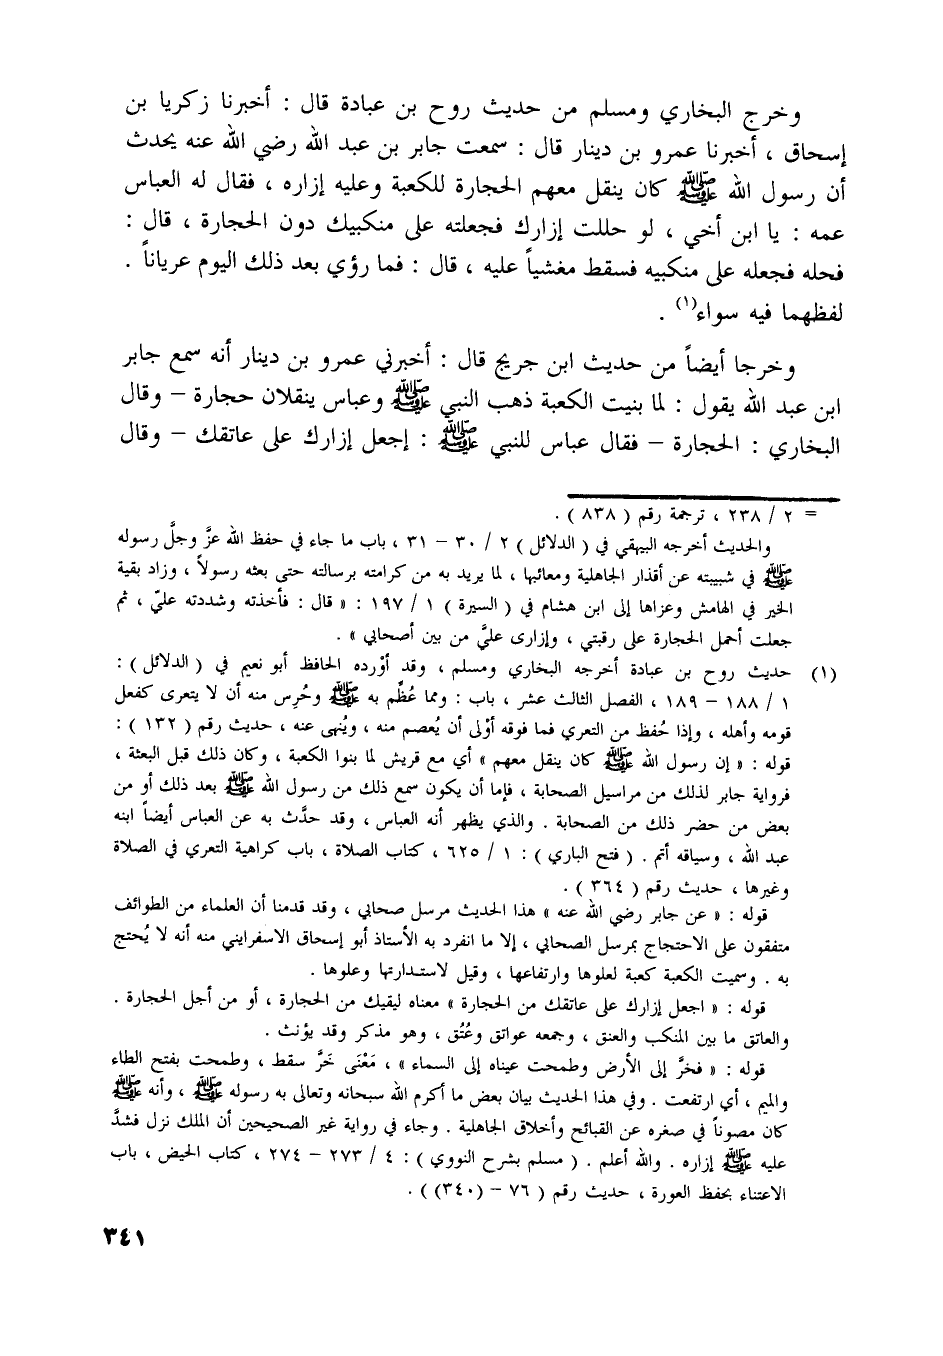 وخرج البخاري ومسلم من حديث روح بن عبادة قال : أخبرنا زكريا بن
إسحاق ، أخبرنا عمرو بن دينار قال : سمعت جابر بن عبد الله رضي الله عنه يحدث
أن رسول الله ﷺ كان ينقل معهم الحجارة للكعبة وعليه إزاره ، فقال له العباس
عمه : يا ابن أخي ، لو حللت إزارك فجعلته على منكبيك دون الحجارة ، قال :
فحله فجعله على منكبيه فسقط مغشياً عليه ، قال : فما رؤي بعد ذلك اليوم عرياناً .
لفظهما فيه سواء(١) .
وخرجا أيضاً من حديث ابن جريج قال : أخبرني عمرو بن دينار أنه سمع جابر
ابن عبد الله يقول : لما بنيت الكعبة ذهب النبي ﷺ وعباس ينقلان حجارة – وقال
البخاري : الحجارة – فقال عباس للنبي ﷺ : إجعل إزارك على عاتقك – وقال
= ٢ / ٢٣٨ ، ترجمة رقم ( ٨٣٨ ) .
والحديث أخرجه البيهقي في ( الدلائل ) ٢ / ٣٠ – ٣١ ، باب ما جاء في حفظ الله عزَّ وجلَّ رسوله
ﷺ في شبيبته عن أقذار الجاهلية ومعائبها ، لما يريد به من كرامته برسالته حتى بعثه رسولاً ، وزاد بقية
الخبر في الهامش وعزاها إلى ابن هشام في ( السيرة ) ١ / ١٩٧ : « قال : فأخذته وشددته عليّ ، ثم
جعلت أحمل الحجارة على رقبتي ، وإزارى عليَّ من بين أصحابي » .
(١) حديث روح بن عبادة أخرجه البخاري ومسلم ، وقد أوْرده الحافظ أبو نعيم في ( الدلائل ) :
١ / ١٨٨ – ١٨٩ ، الفصل الثالث عشر ، باب : ومما عُظِّم به ﷺ وحُرِس منه أن لا يتعرى كفعل
قومه وأهله ، وإذا حُفظ من التعري فما فوقه أوْلى أن يُعصم منه ، ويُنهى عنه ، حديث رقم ( ١٣٢ ) :
قوله : « إن رسول الله ﷺ كان ينقل معهم » أي مع قريش لما بنوا الكعبة ، وكان ذلك قبل البعثة ،
فرواية جابر لذلك من مراسيل الصحابة ، فإما أن يكون سمع ذلك من رسول الله ﷺ بعد ذلك أو من
بعض من حضر ذلك من الصحابة . والذي يظهر أنه العباس ، وقد حدَّث به عن العباس أيضاً ابنه
عبد الله ، وسياقه أتم . ( فتح الباري ) : ١ / ٦٢٥ ، كتاب الصلاة ، باب كراهية التعري في الصلاة
وغيرها ، حديث رقم ( ٣٦٤ ) .
قوله : « عن جابر رضي الله عنه » هذا الحديث مرسل صحابي ، وقد قدمنا أن العلماء من الطوائف
متفقون على الاحتجاج بمرسل الصحابي ، إلا ما انفرد به الأستاذ أبو إسحاق الاسفرايني منه أنه لا يُحتج
به . وسميت الكعبة كعبة لعلوها وارتفاعها ، وقيل لاستدارتها وعلوها .
قوله : « اجعل إزارك على عاتقك من الحجارة » معناه ليقيك من الحجارة ، أو من أجل الحجارة .
والعاتق ما بين المنكب والعنق ، وجمعه عواتق وعُتُق ، وهو مذكر وقد يؤنث .
قوله : « فخرَّ إلى الأرض وطمحت عيناه إلى السماء » ، مَعْنَى خَرَّ سقط ، وطمحت بفتح الطاء
والميم ، أي ارتفعت . وفي هذا الحديث بيان بعض ما أكرم الله سبحانه وتعالى به رسوله ﷺ ، وأنه ﷺ
كان مصوناً في صغره عن القبائح وأخلاق الجاهلية . وجاء في رواية غير الصحيحين أن الملك نزل فشدَّ
عليه ﷺ إزاره . والله أعلم . ( مسلم بشرح النووي ) : ٤ / ٢٧٣ – ٢٧٤ ، كتاب الحيض ، باب
الاعتناء بحفظ العورة ، حديث رقم ( ٧٦ – (٣٤٠) ) .
٣٤١